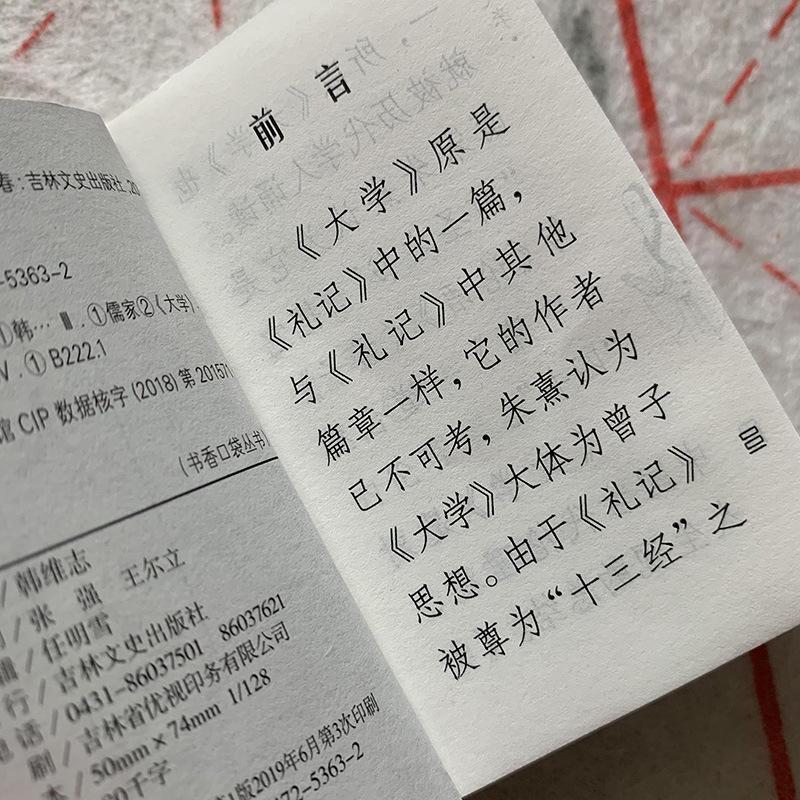 春：吉林文史出版社，20
-5363-2
①韩… Ⅲ．①儒家②《大学》
Ⅳ．①B222.1
馆 CIP 数据核字 (2018) 第 201571
（书香口袋丛书）
/ 韩维志
/ 张 强 王尔立
/ 任明雪
行 / 吉林文史出版社
电 话 / 0431-86037501 86037621
刷 / 吉林省优视印务有限公司
本 / 50mm×74mm 1/128
千字
1版2019年6月第3次印刷
72-5363-2
前言
《大学》原是
《礼记》中的一篇，
与《礼记》中其他
篇章一样，它的作者
已不可考，朱熹认为
《大学》大体为曾子
思想。由于《礼记》
被尊为“十三经”之